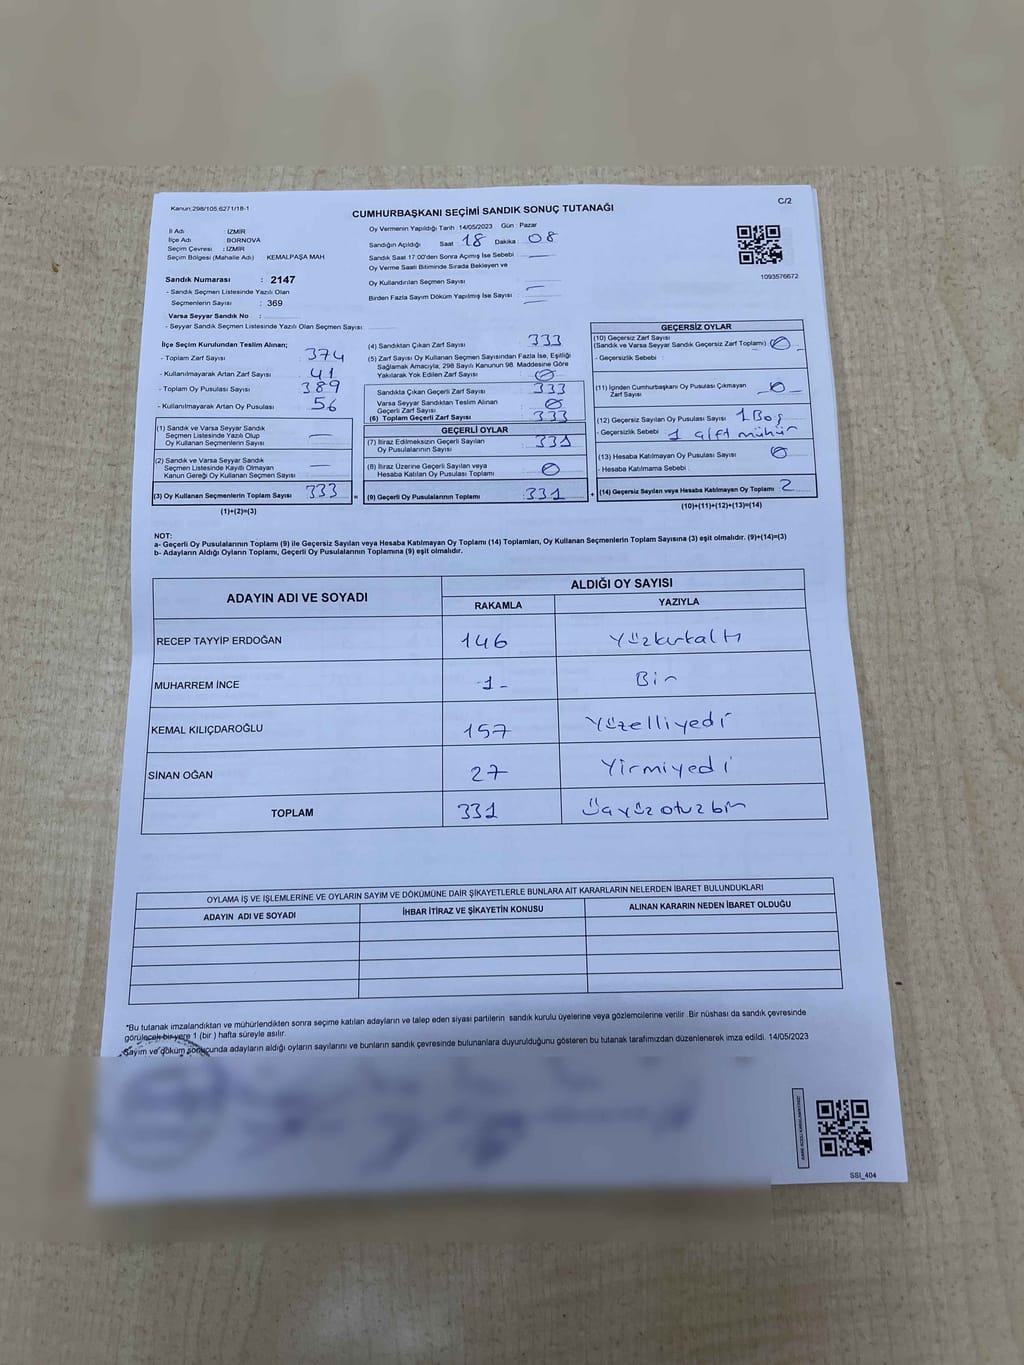 Kanun:298/105,6271/18-1
C/2
CUMHURBAŞKANI SEÇİMİ SANDIK SONUÇ TUTANAĞI
İl Adı : İZMİR
İlçe Adı : BORNOVA
Seçim Çevresi : İZMİR
Seçim Bölgesi (Mahalle Adı) : KEMALPAŞA MAH
Sandık Numarası : 2147
- Sandık Seçmen Listesinde Yazılı Olan
Seçmenlerin Sayısı : 369
Varsa Seyyar Sandık No :
- Seyyar Sandık Seçmen Listesinde Yazılı Olan Seçmen Sayısı :
Oy Vermenin Yapıldığı Tarih :14/05/2023 Gün : Pazar
Sandığın Açıldığı Saat : 18 Dakika : 08
Sandık Saat 17:00'den Sonra Açımış İse Sebebi :
Oy Verme Saati Bitiminde Sırada Bekleyen ve
Oy Kullandırılan Seçmen Sayısı :
Birden Fazla Sayım Döküm Yapılmış İse Sayısı :
1093576672
İlçe Seçim Kurulundan Teslim Alınan;
- Toplam Zarf Sayısı : 374
- Kullanılmayarak Artan Zarf Sayısı : 41
- Toplam Oy Pusulası Sayısı : 389
- Kullanılmayarak Artan Oy Pusulası : 56
(1) Sandık ve Varsa Seyyar Sandık
Seçmen Listesinde Yazılı Olup
Oy Kullanan Seçmenlerin Sayısı : —
(2) Sandık ve Varsa Seyyar Sandık
Seçmen Listesinde Kayıtlı Olmayan
Kanun Gereği Oy Kullanan Seçmen Sayısı : —
(3) Oy Kullanan Seçmenlerin Toplam Sayısı : 333
(1)+(2)=(3)
(4) Sandıktan Çıkan Zarf Sayısı : 333
(5) Zarf Sayısı Oy Kullanan Seçmen Sayısından Fazla İse, Eşitliği
Sağlamak Amacıyla; 298 Sayılı Kanunun 98. Maddesine Göre
Yakılarak Yok Edilen Zarf Sayısı : 0
Sandıkta Çıkan Geçerli Zarf Sayısı : 333
Varsa Seyyar Sandıktan Teslim Alınan
Geçerli Zarf Sayısı : 0
(6) Toplam Geçerli Zarf Sayısı : 333
GEÇERLİ OYLAR
(7) İtiraz Edilmeksizin Geçerli Sayılan
Oy Pusulalarının Sayısı : 331
(8) İtiraz Üzerine Geçerli Sayılan veya
Hesaba Katılan Oy Pusulası Toplamı : 0
(9) Geçerli Oy Pusulalarının Toplamı : 331
GEÇERSİZ OYLAR
(10) Geçersiz Zarf Sayısı
(Sandık ve Varsa Seyyar Sandık Geçersiz Zarf Toplamı) : 0
- Geçersizlik Sebebi :
(11) İçinden Cumhurbaşkanı Oy Pusulası Çıkmayan
Zarf Sayısı : 0
(12) Geçersiz Sayılan Oy Pusulası Sayısı : 1 Boş
- Geçersizlik Sebebi : 1 çift mühür
(13) Hesaba Katılmayan Oy Pusulası Sayısı : 0
- Hesaba Katılmama Sebebi :
(14) Geçersiz Sayılan veya Hesaba Katılmayan Oy Toplamı : 2
(10)+(11)+(12)+(13)=(14)
NOT:
a- Geçerli Oy Pusulalarının Toplamı (9) ile Geçersiz Sayılan veya Hesaba Katılmayan Oy Toplamı (14) Toplamları, Oy Kullanan Seçmenlerin Toplam Sayısına (3) eşit olmalıdır. (9)+(14)=(3)
b- Adayların Aldığı Oyların Toplamı, Geçerli Oy Pusulalarının Toplamına (9) eşit olmalıdır.
ADAYIN ADI VE SOYADI
ALDIĞI OY SAYISI
RAKAMLA YAZIYLA
RECEP TAYYİP ERDOĞAN 146 Yüzkırkaltı
MUHARREM İNCE -1- Bir
KEMAL KILIÇDAROĞLU 157 Yüzelliyedi
SİNAN OĞAN 27 Yirmiyedi
TOPLAM 331 Üçyüzotuzbir
OYLAMA İŞ VE İŞLEMLERİNE VE OYLARIN SAYIM VE DÖKÜMÜNE DAİR ŞİKAYETLERLE BUNLARA AİT KARARLARIN NELERDEN İBARET BULUNDUKLARI
ADAYIN ADI VE SOYADI İHBAR İTİRAZ VE ŞİKAYETİN KONUSU ALINAN KARARIN NEDEN İBARET OLDUĞU
*Bu tutanak imzalandıktan ve mühürlendikten sonra seçime katılan adayların ve talep eden siyasi partilerin sandık kurulu üyelerine veya gözlemcilerine verilir. Bir nüshası da sandık çevresinde
görülecek bir yere 1 (bir ) hafta süreyle asılır.
Sayım ve döküm sonucunda adayların aldığı oyların sayılarını ve bunların sandık çevresinde bulunanlara duyurulduğunu gösteren bu tutanak tarafımızdan düzenlenerek imza edildi. 14/05/2023
SSI_404